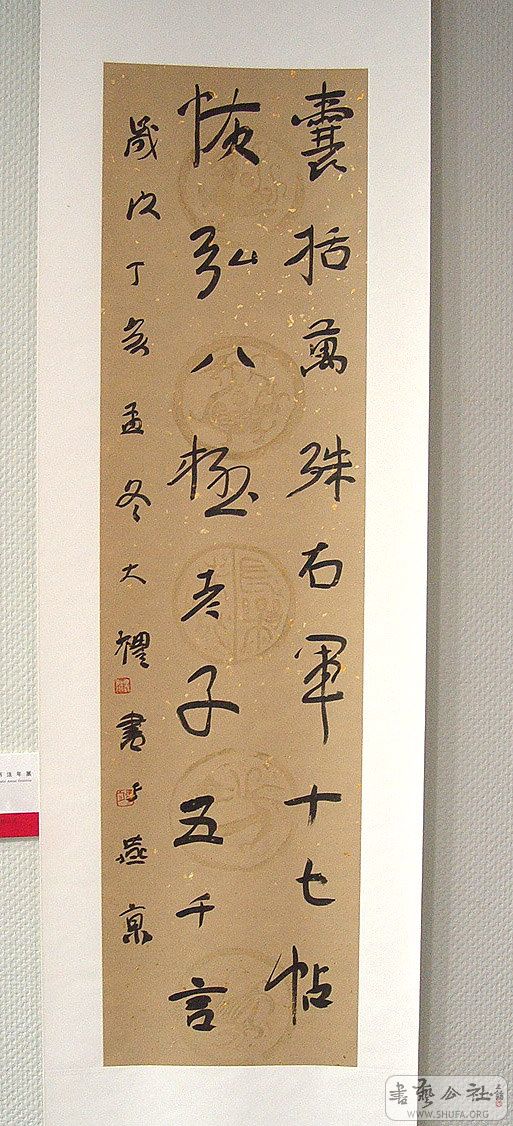 囊括萬殊右軍十七帖
恢弘八極老子五千言
歲次丁亥孟冬大禮書于燕京
書藝公社
WWW.SHUFA.ORG